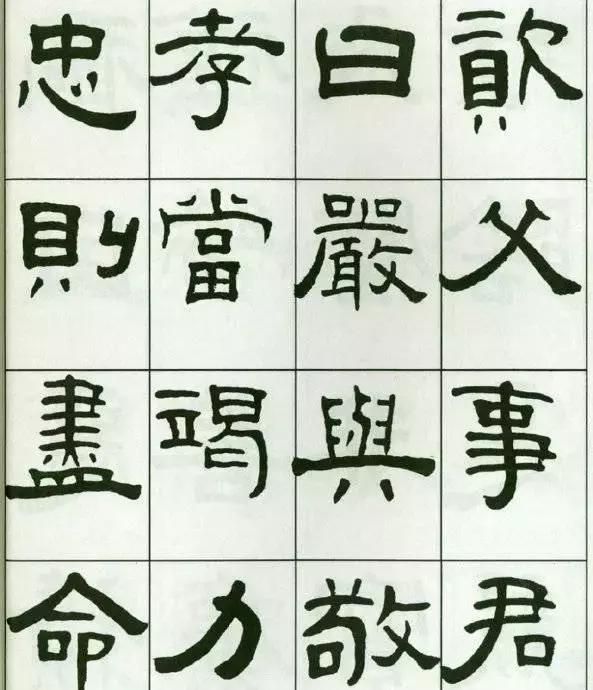 資父事君
曰嚴與敬
孝當竭力
忠則盡命